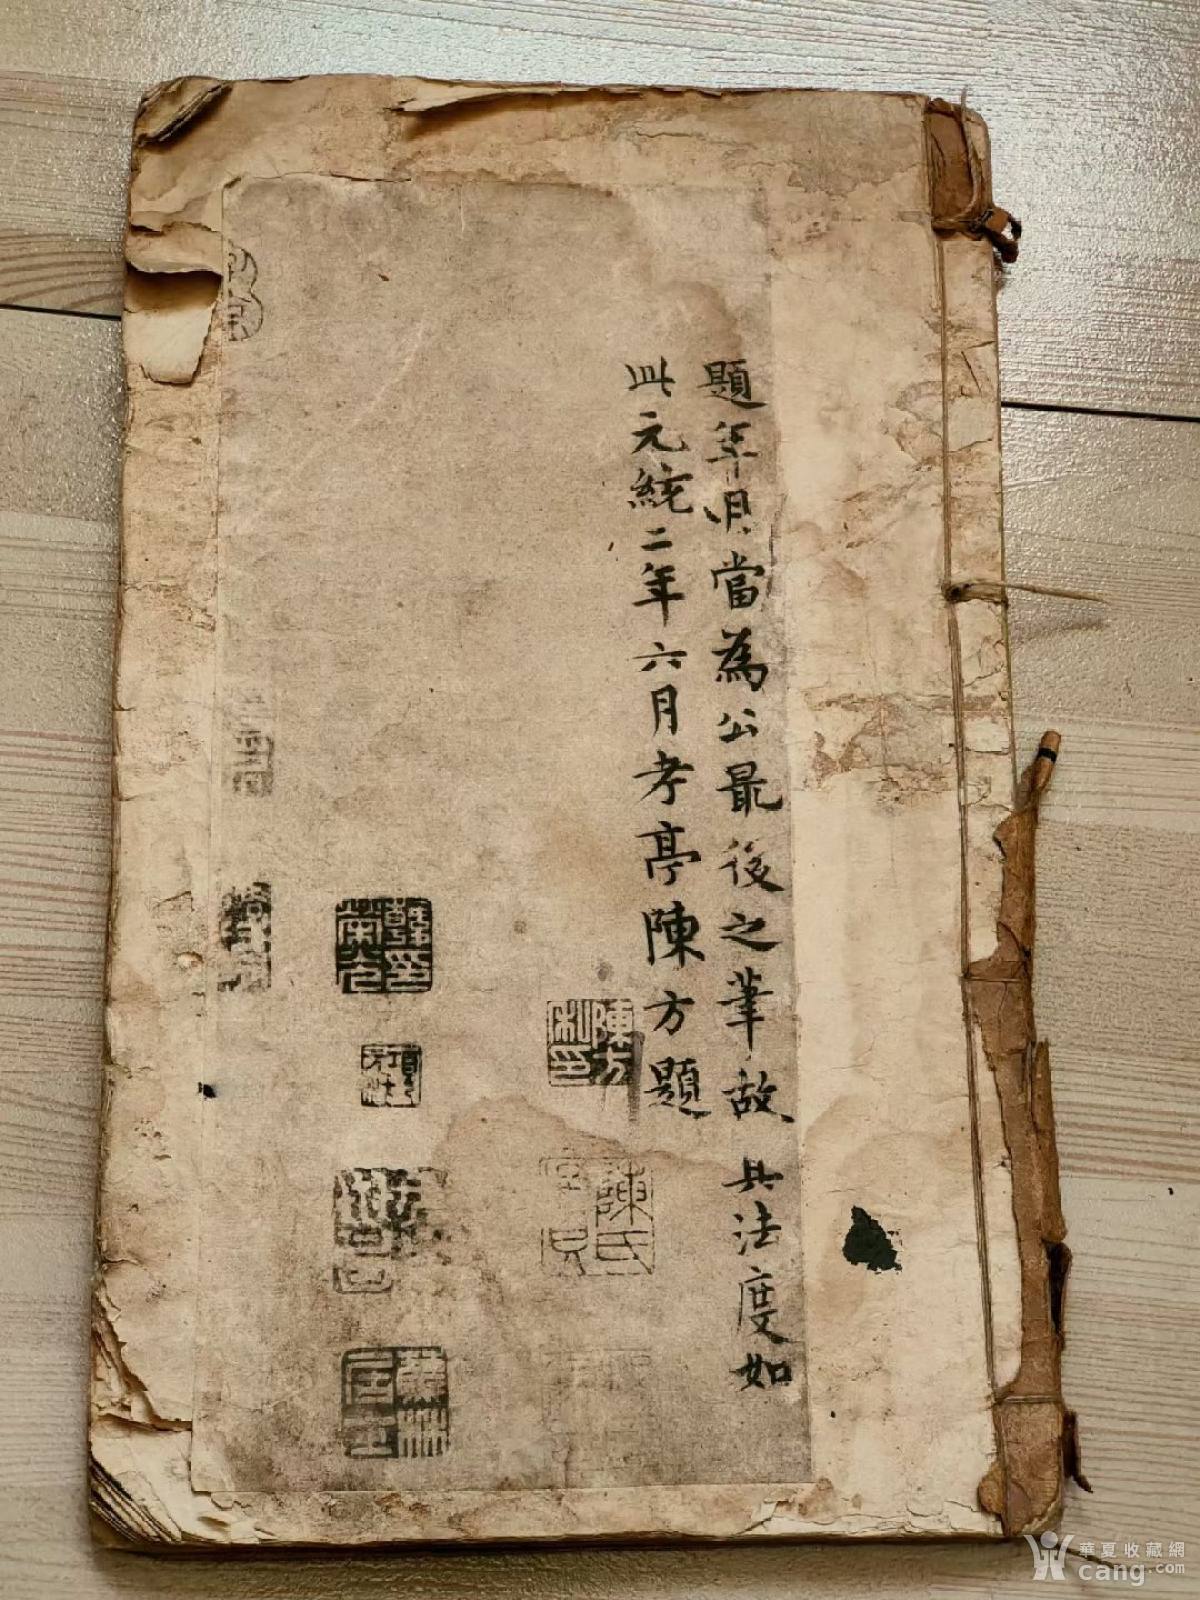 題年月當為公最後之筆故其法度如
此元統二年六月孝亭陳方題
陳方
私印
陳氏
韓
印
項
華夏收藏網
cang.com